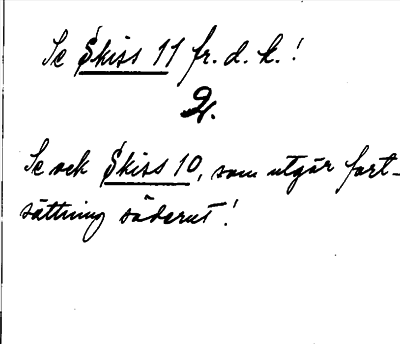 Se Skiss 11 fr. d. k.!
2.
Se ock Skiss 10, som utgör fort-
sättning söderut!